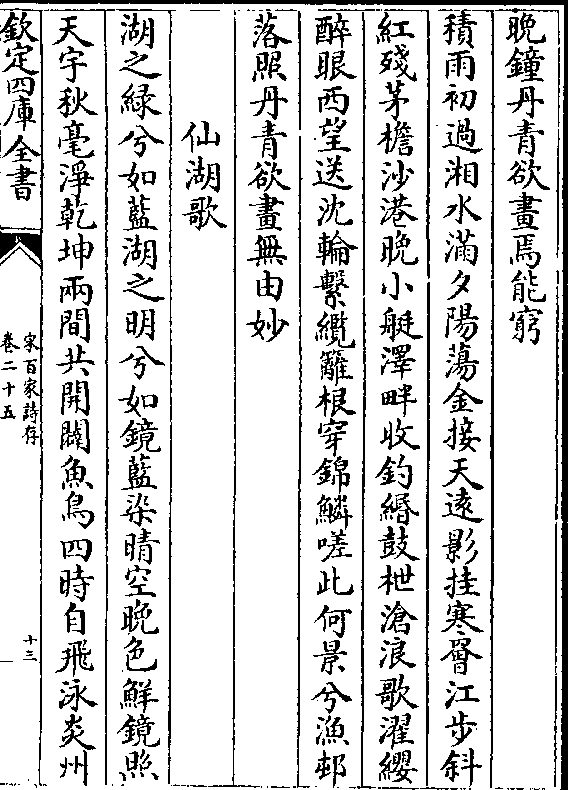 晚鐘丹青欲畫焉能窮
積雨初過湘水滿夕陽蕩金接天遠影挂寒罾江步斜
紅殘茅檐沙港晚小艇澤畔收釣緡鼓枻滄浪歌濯纓
醉眼西望送沈輪繫纜籬根穿錦鱗嗟此何景兮漁邨
落照丹青欲畫無由妙
仙湖歌
湖之綠兮如藍湖之明兮如鏡藍染晴空晚色鮮鏡照
天宇秋毫淨乾坤兩間共開闢魚鳥四時自飛泳炎州
欽定四庫全書
宋百家詩存
卷二十五
十三